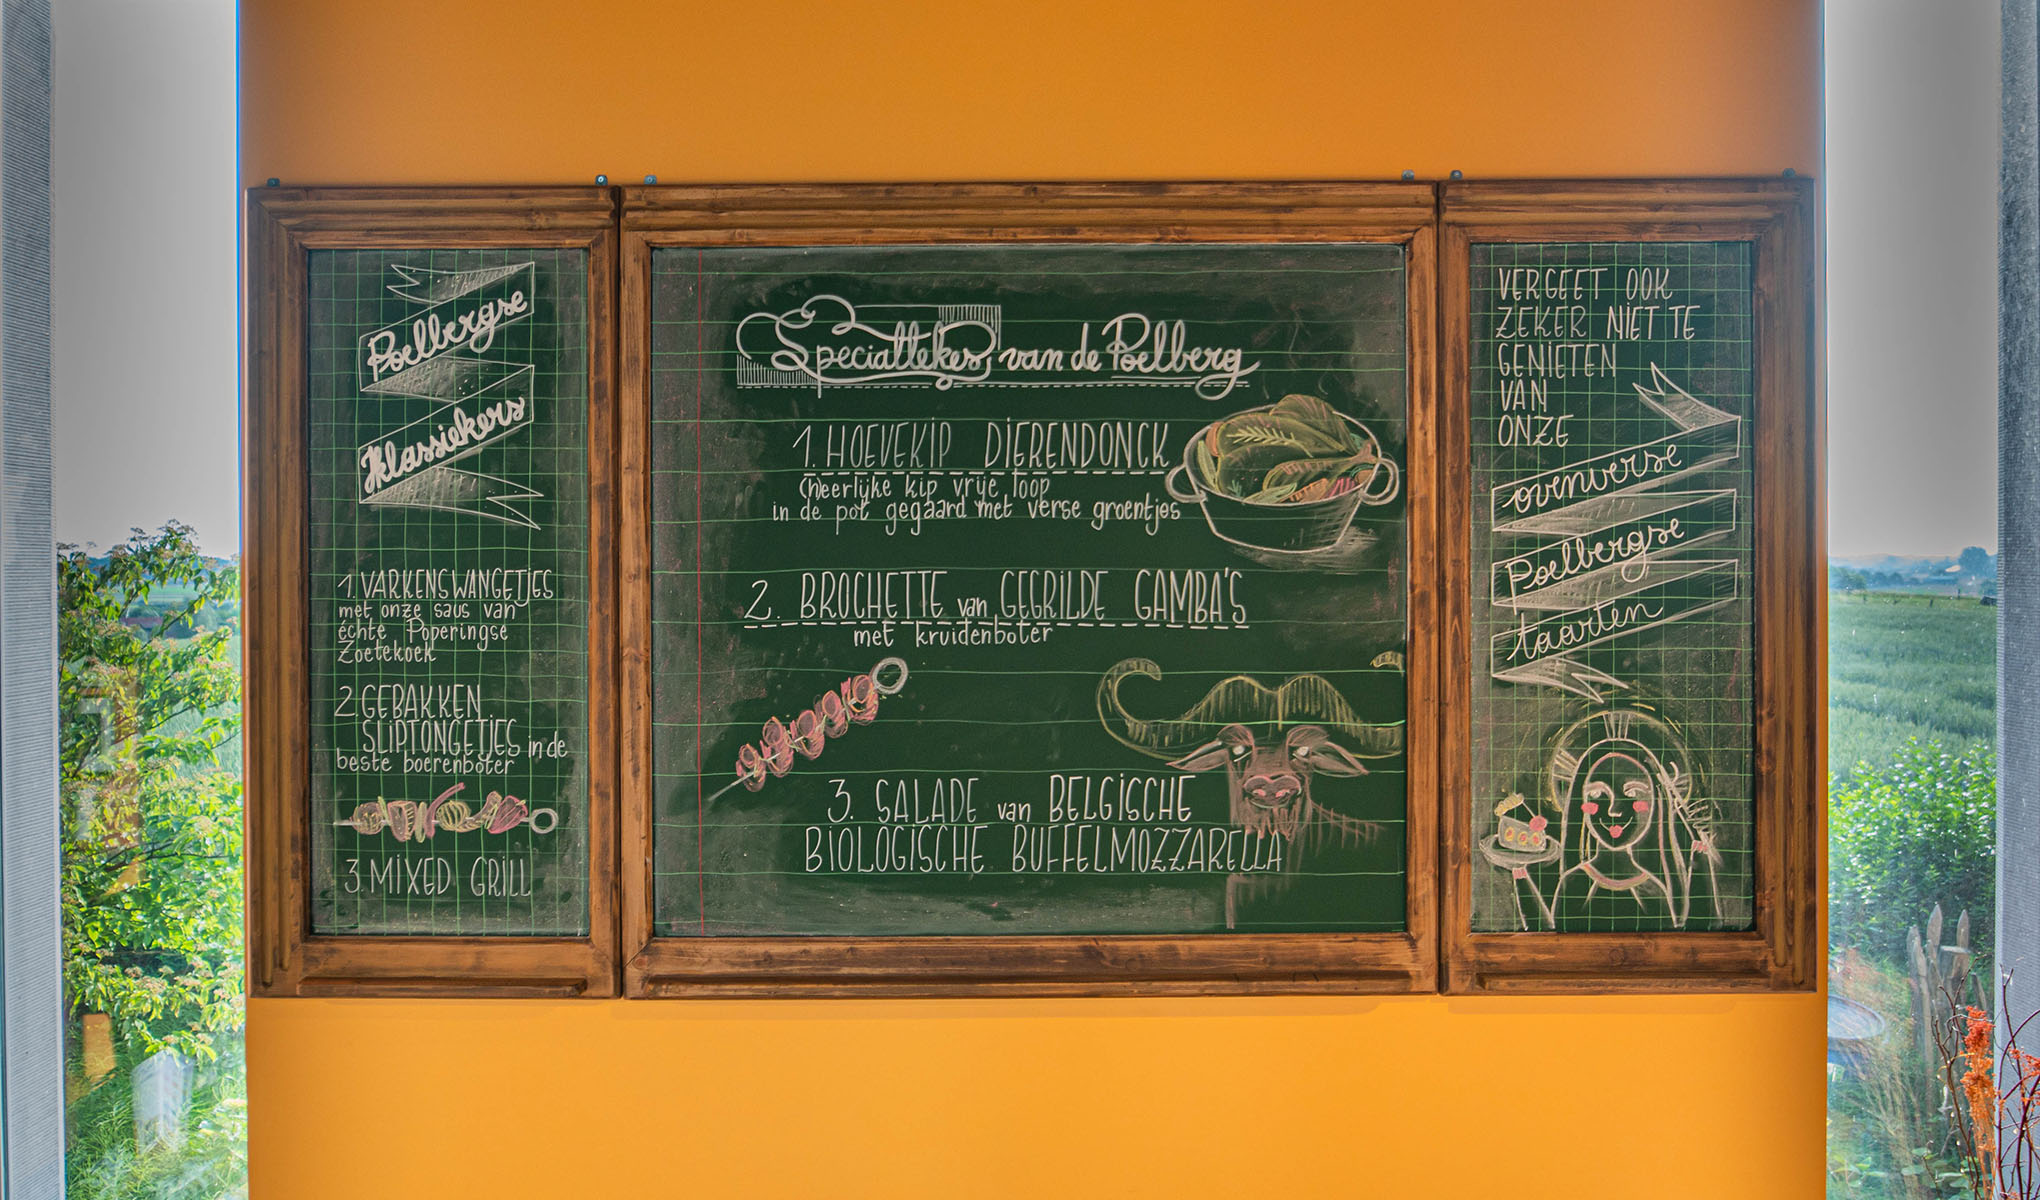 Poelbergse
Klassiekers
1. VARKENSWANGETJES
met onze saus van
échte Poperingse
Zoetekoek
2. GEBAKKEN
SLIPTONGETJES in de
beste boerenboter
3. MIXED GRILL
Specialtekes van de Poelberg
1. HOEVEKIP DIERENDONCK
(h)eerlijke kip vrije loop
in de pot gegaard met verse groentjes
2. BROCHETTE van GEGRILDE GAMBA'S
met kruidenboter
3. SALADE van BELGISCHE
BIOLOGISCHE BUFFELMOZZARELLA
VERGEET OOK
ZEKER NIET TE
GENIETEN
VAN
ONZE
ovenverse
Poelbergse
taarten